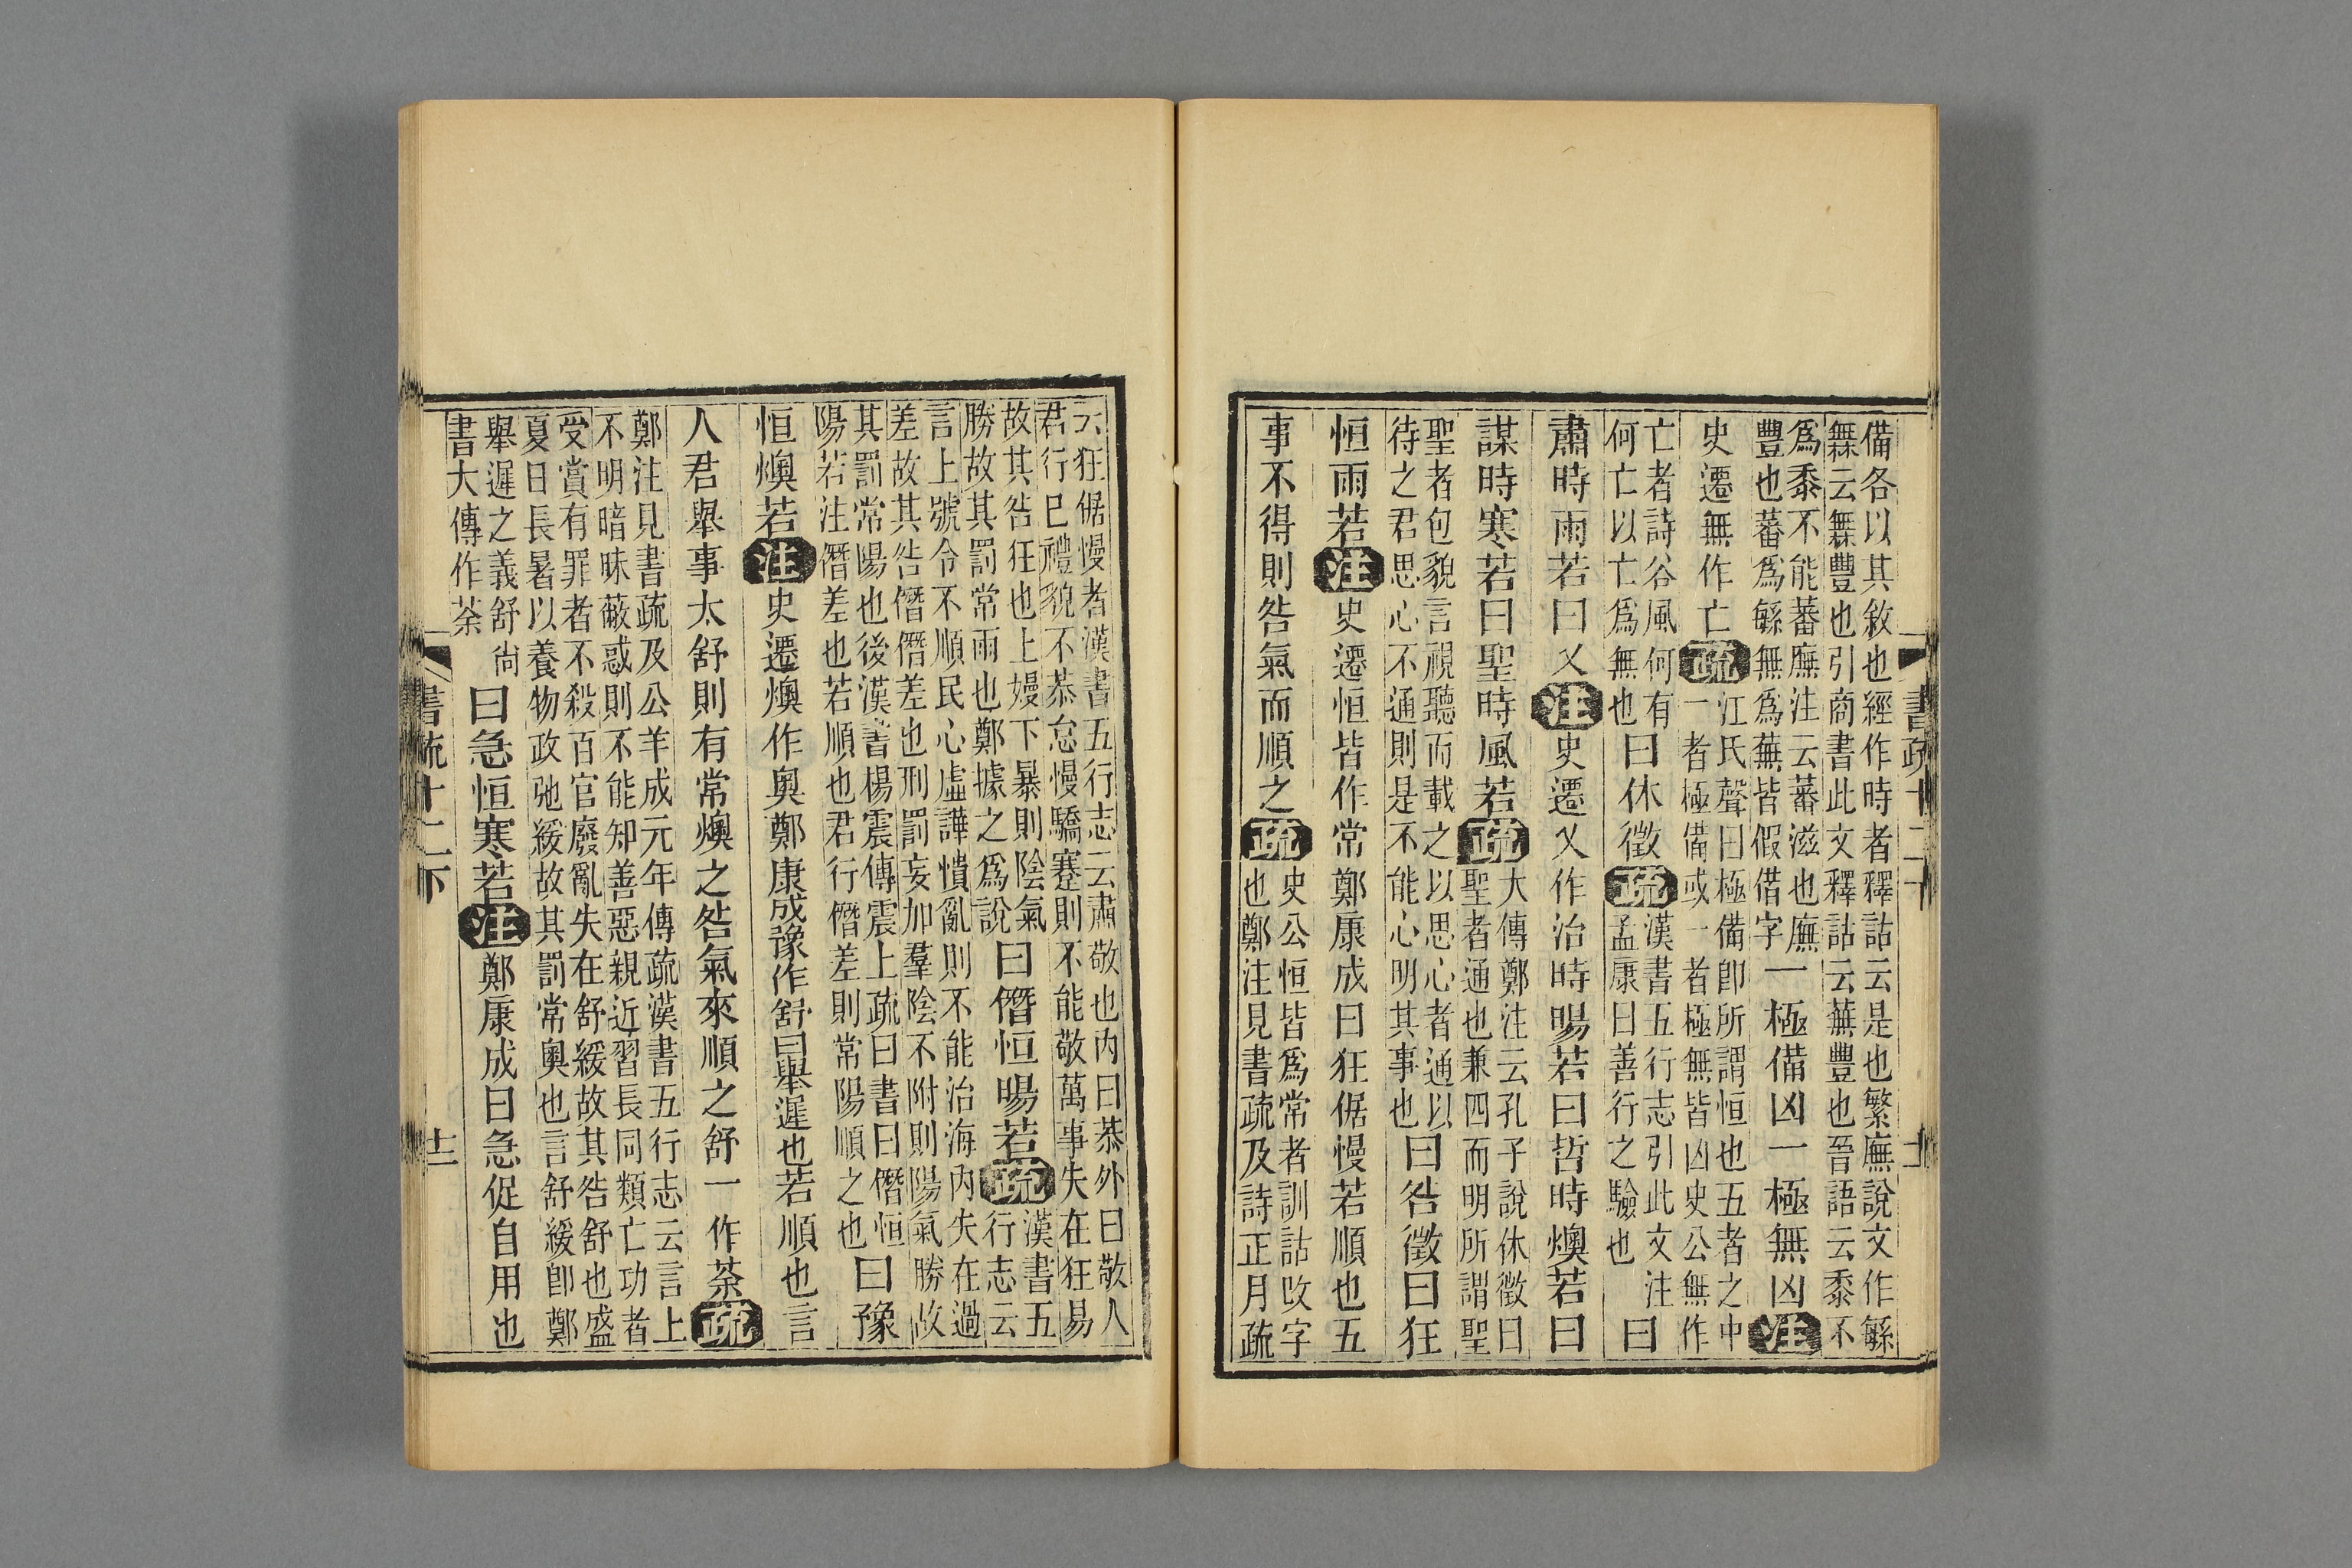 書疏十二下
備各以其敘也經作時者釋詁云是也繁廡說文作緐
橆云橆豐也引商書此文釋詁云蕪豐也晉語云黍不
爲黍不能蕃廡注云蕃滋也廡
豐也蕃爲緐無爲蕪皆假借字
一極備凶一極無凶注
史遷無作亡疏
江氏聲曰極備卽所謂恒也五者之中
一者極備或一者極無皆凶史公無作
亡者詩谷風何有
何亡以亡爲無也
曰休徵疏
漢書五行志引此文注
孟康曰善行之驗也
曰
肅時雨若曰乂注史遷乂作治時暘若曰哲時燠若曰
謀時寒若曰聖時風若疏
大傳鄭注云孔子說休徵曰
聖者通也兼四而明所謂聖
聖者包貌言視聽而載之以思心者通以
待之君思心不通則是不能心明其事也
曰咎徵曰狂
恒雨若注史遷恒皆作常鄭康成曰狂倨慢若順也五
事不得則咎氣而順之疏
史公恒皆爲常者訓詁改字
也鄭注見書疏及詩正月疏
云狂倨慢者漢書五行志云肅敬也內曰恭外曰敬人
君行己禮貌不恭怠慢驕蹇則不能敬萬事失在狂易
故其咎狂也上嫚下暴則陰氣
勝故其罰常雨也鄭據之爲說
曰僭恒暘若疏
漢書五
行志云
言上號令不順民心虛譁憒亂則不能治海內失在過
差故其咎僭僭差也刑罰妄加羣陰不附則陽氣勝故
其罰常陽也後漢書楊震傳震上疏曰書曰僭恒
陽若注僭差也若順也君行僭差則常陽順之也
曰豫
恒燠若注史遷燠作奧鄭康成豫作舒曰舉遲也若順也言
人君舉事太舒則有常燠之咎氣來順之舒一作荼疏
鄭注見書疏及公羊成元年傳疏漢書五行志云言上
不明暗昧蔽惑則不能知善惡親近習長同類亡功者
受賞有罪者不殺百官廢亂失在舒緩故其咎舒也盛
夏日長暑以養物政弛緩故其罰常奧也言舒緩卽鄭
舉遲之義舒尙
書大傳作荼
曰急恒寒若注鄭康成曰急促自用也
書疏十二下
十二